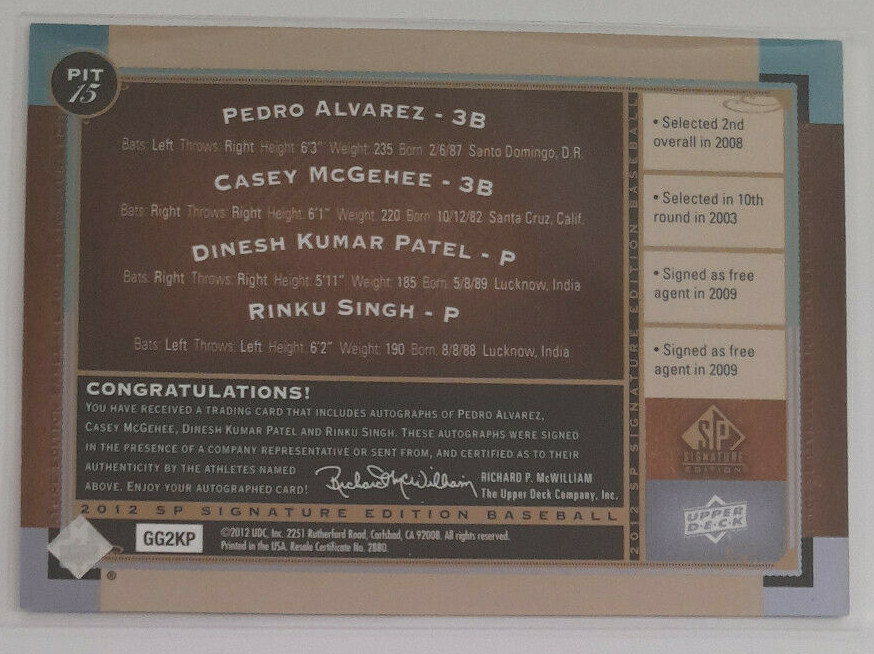 PIT
15
PEDRO ALVAREZ - 3B
Bats: Left Throws: Right Height: 6'3" Weight: 235 Born: 2/6/87 Santo Domingo, D.R.
CASEY MCGEHEE - 3B
Bats: Right Throws: Right Height: 6'1" Weight: 220 Born: 10/12/82 Santa Cruz, Calif.
DINESH KUMAR PATEL - P
Bats: Right Throws: Right Height: 5'11" Weight: 185 Born: 5/8/89 Lucknow, India
RINKU SINGH - P
Bats: Left Throws: Left Height: 6'2" Weight: 190 Born: 8/8/88 Lucknow, India
• Selected 2nd
overall in 2008
• Selected in 10th
round in 2003
• Signed as free
agent in 2009
• Signed as free
agent in 2009
CONGRATULATIONS!
YOU HAVE RECEIVED A TRADING CARD THAT INCLUDES AUTOGRAPHS OF PEDRO ALVAREZ,
CASEY MCGEHEE, DINESH KUMAR PATEL AND RINKU SINGH. THESE AUTOGRAPHS WERE SIGNED
IN THE PRESENCE OF A COMPANY REPRESENTATIVE OR SENT FROM, AND CERTIFIED AS TO THEIR
AUTHENTICITY BY THE ATHLETES NAMED
ABOVE. ENJOY YOUR AUTOGRAPHED CARD!
Richard P. McWilliam
RICHARD P. McWILLIAM
The Upper Deck Company, Inc.
2012 SP SIGNATURE EDITION BASEBALL
2012 SP SIGNATURE EDITION BASEBALL
SP
SIGNATURE
EDITION
UPPER
D·E·C·K
GG2KP
©2012 UDC, Inc. 2251 Rutherford Road, Carlsbad, CA 92008. All rights reserved.
Printed in the USA. Resale Certificate No. 2880.
®